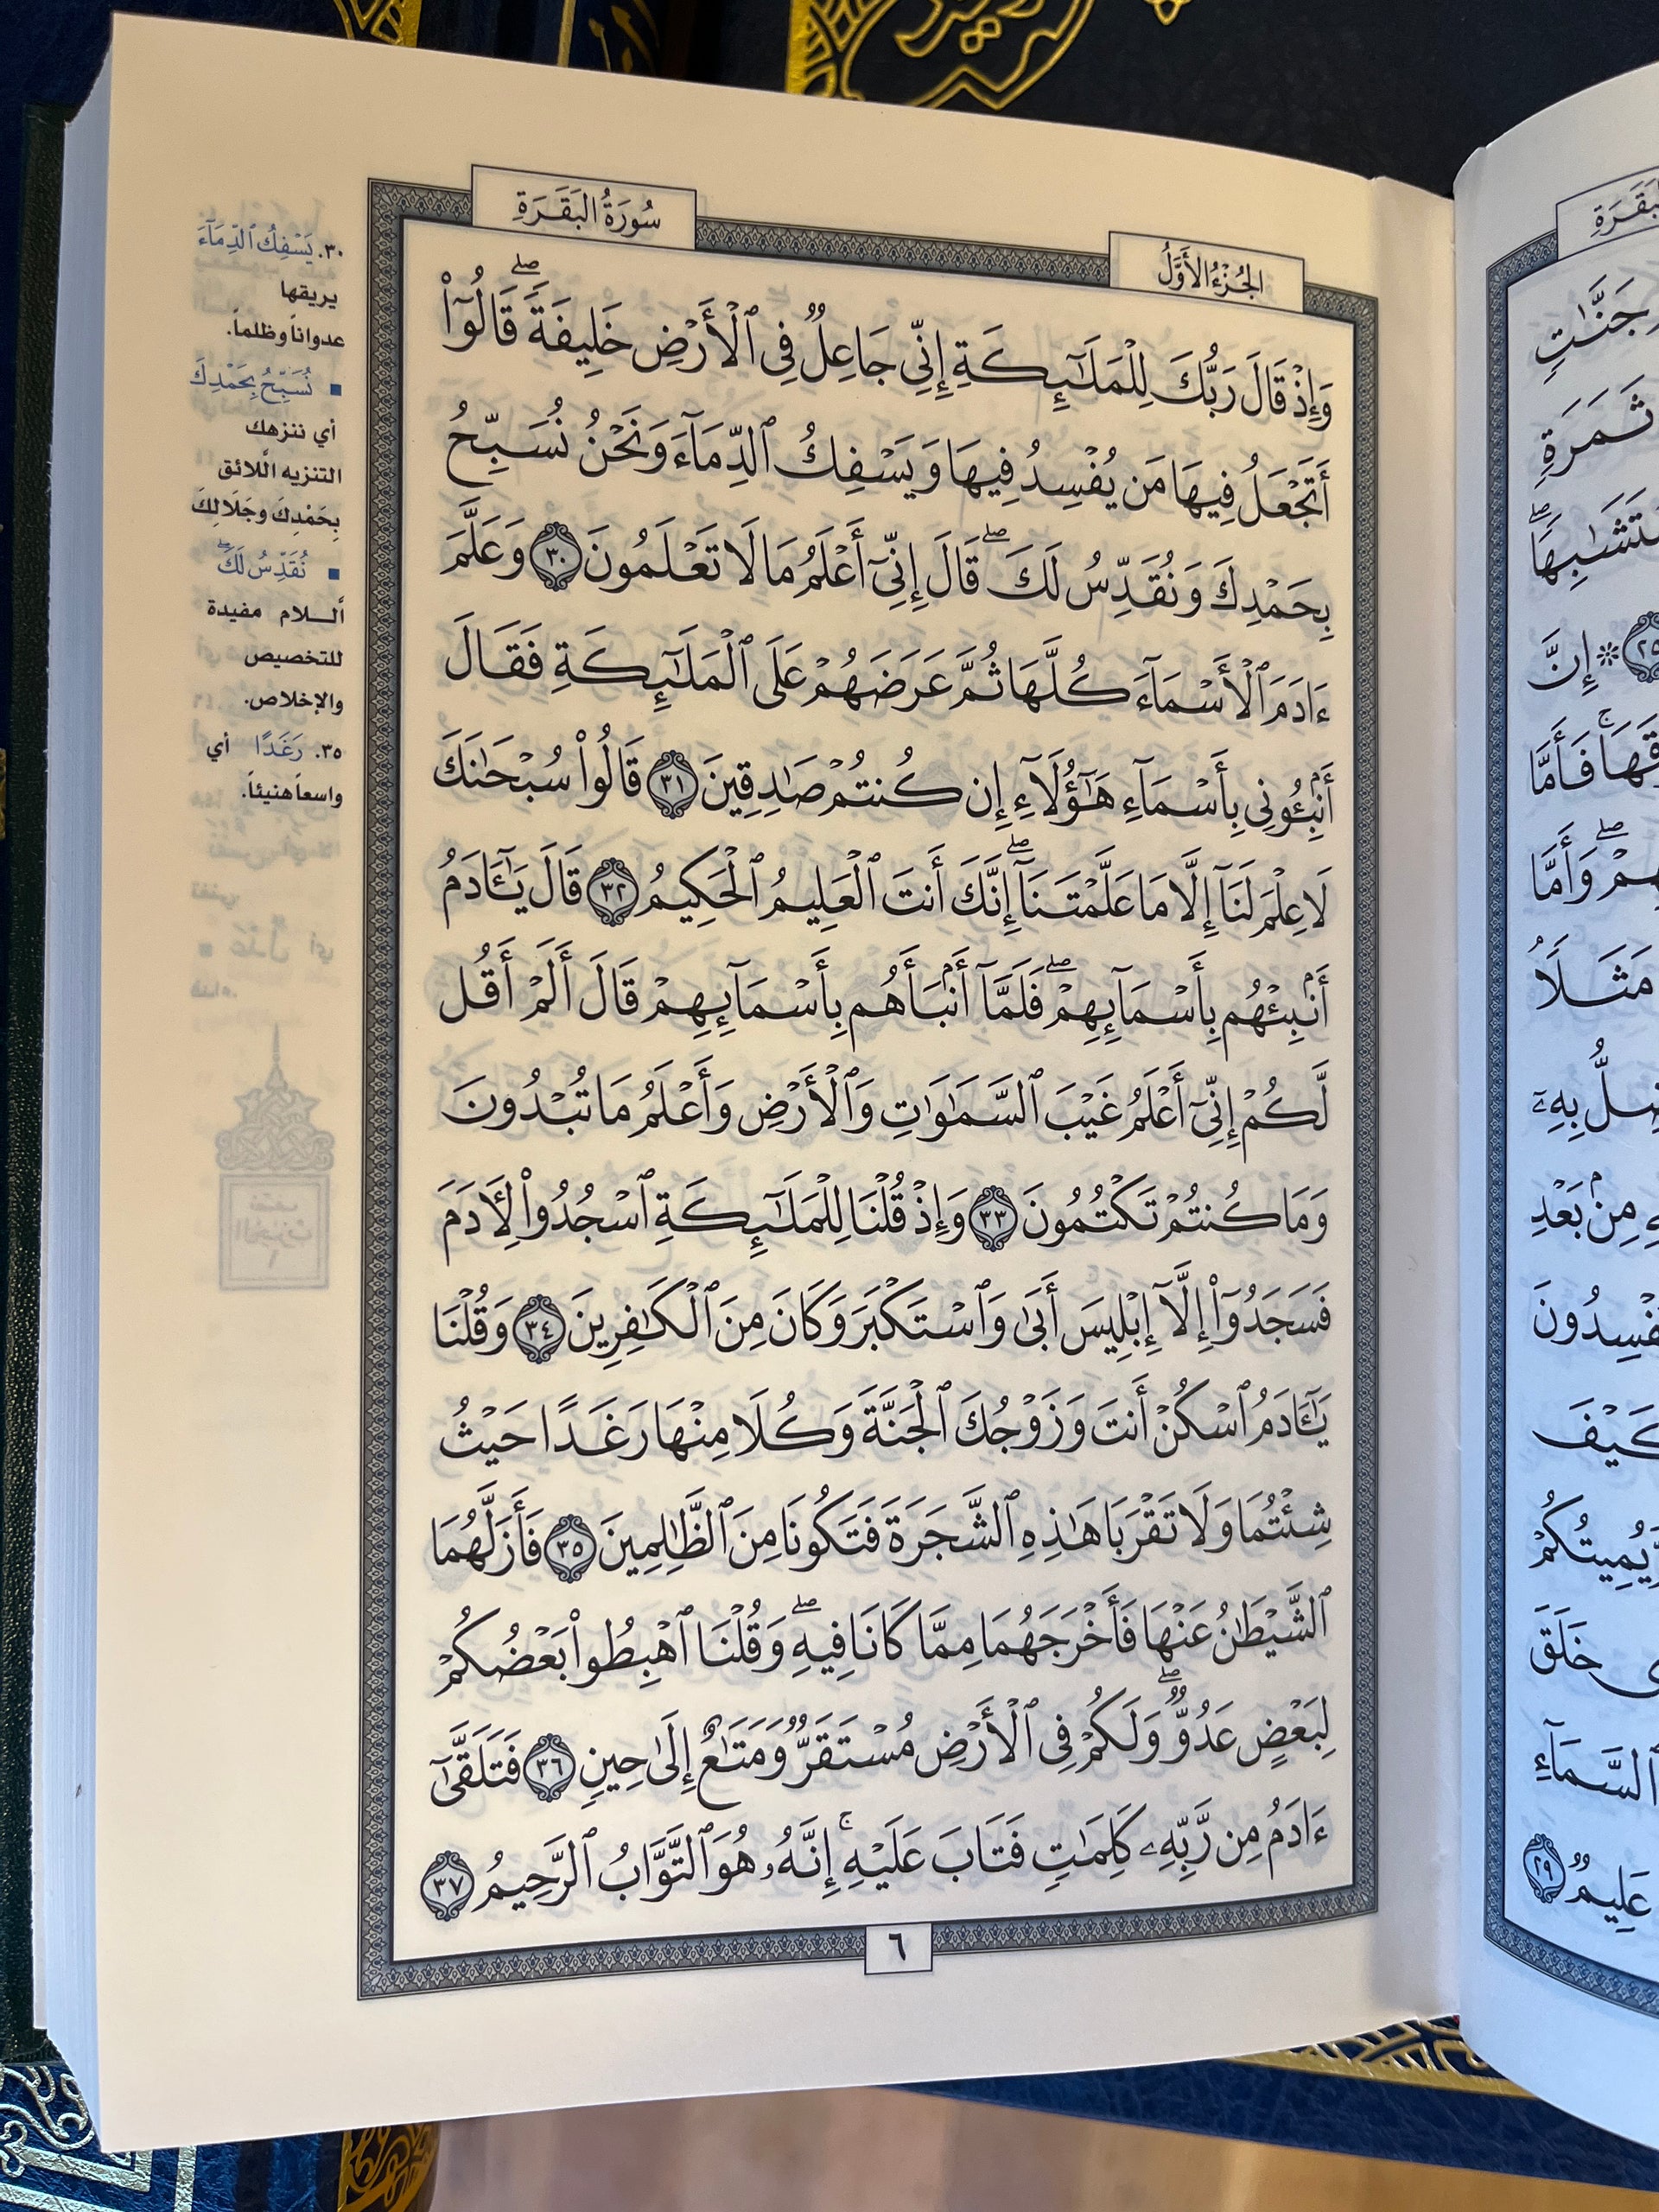 سُورَةُ البَقَرَةِ
الجُزْءُ الأَوَّلُ
وَإِذْ قَالَ رَبُّكَ لِلْمَلَٰٓئِكَةِ إِنِّى جَاعِلٌ فِى ٱلْأَرْضِ خَلِيفَةً ۖ قَالُوٓا۟
أَتَجْعَلُ فِيهَا مَن يُفْسِدُ فِيهَا وَيَسْفِكُ ٱلدِّمَآءَ وَنَحْنُ نُسَبِّحُ
بِحَمْدِكَ وَنُقَدِّسُ لَكَ ۖ قَالَ إِنِّىٓ أَعْلَمُ مَا لَا تَعْلَمُونَ ٣٠ وَعَلَّمَ
ءَادَمَ ٱلْأَسْمَآءَ كُلَّهَا ثُمَّ عَرَضَهُمْ عَلَى ٱلْمَلَٰٓئِكَةِ فَقَالَ
أَنۢبِـُٔونِى بِأَسْمَآءِ هَٰٓؤُلَآءِ إِن كُنتُمْ صَٰدِقِينَ ٣١ قَالُوا۟ سُبْحَٰنَكَ
لَا عِلْمَ لَنَآ إِلَّا مَا عَلَّمْتَنَآ ۖ إِنَّكَ أَنتَ ٱلْعَلِيمُ ٱلْحَكِيمُ ٣٢ قَالَ يَٰٓـَٔادَمُ
أَنۢبِئْهُم بِأَسْمَآئِهِمْ ۖ فَلَمَّآ أَنۢبَأَهُم بِأَسْمَآئِهِمْ قَالَ أَلَمْ أَقُل
لَّكُمْ إِنِّىٓ أَعْلَمُ غَيْبَ ٱلسَّمَٰوَٰتِ وَٱلْأَرْضِ وَأَعْلَمُ مَا تُبْدُونَ
وَمَا كُنتُمْ تَكْتُمُونَ ٣٣ وَإِذْ قُلْنَا لِلْمَلَٰٓئِكَةِ ٱسْجُدُوا۟ لِـَٔادَمَ
فَسَجَدُوٓا۟ إِلَّآ إِبْلِيسَ أَبَىٰ وَٱسْتَكْبَرَ وَكَانَ مِنَ ٱلْكَٰفِرِينَ ٣٤ وَقُلْنَا
يَٰٓـَٔادَمُ ٱسْكُنْ أَنتَ وَزَوْجُكَ ٱلْجَنَّةَ وَكُلَا مِنْهَا رَغَدًا حَيْثُ
شِئْتُمَا وَلَا تَقْرَبَا هَٰذِهِ ٱلشَّجَرَةَ فَتَكُونَا مِنَ ٱلظَّٰلِمِينَ ٣٥ فَأَزَلَّهُمَا
ٱلشَّيْطَٰنُ عَنْهَا فَأَخْرَجَهُمَا مِمَّا كَانَا فِيهِ ۖ وَقُلْنَا ٱهْبِطُوا۟ بَعْضُكُمْ
لِبَعْضٍ عَدُوٌّ ۖ وَلَكُمْ فِى ٱلْأَرْضِ مُسْتَقَرٌّ وَمَتَٰعٌ إِلَىٰ حِينٍ ٣٦ فَتَلَقَّىٰٓ
ءَادَمُ مِن رَّبِّهِۦ كَلِمَٰتٍ فَتَابَ عَلَيْهِ ۚ إِنَّهُۥ هُوَ ٱلتَّوَّابُ ٱلرَّحِيمُ ٣٧
٦
٣٠. يَسْفِكُ ٱلدِّمَآءَ
يريقها
عدواناً وظلماً.
■ نُسَبِّحُ بِحَمْدِكَ
أي ننزهك
التنزيه الّلائق
بِحَمْدِكَ وجَلَالِكَ
■ نُقَدِّسُ لَكَ ۖ
ألـلام مفيدة
للتخصيص
والإخلاص.
٣٥. رَغَدًا أي
واسعاً هنيئاً.
جَنَّٰتٍ
ثَمَرَةٍ
٢٥ ۞ إِنَّ
فَأَمَّا
وَأَمَّا
مَثَلًا
بِهِۦٓ
مِنۢ بَعْدِ
كَيْفَ
يُمِيتُكُمْ
خَلَقَ
ٱلسَّمَآءِ
عَلِيمٌ ٢٩